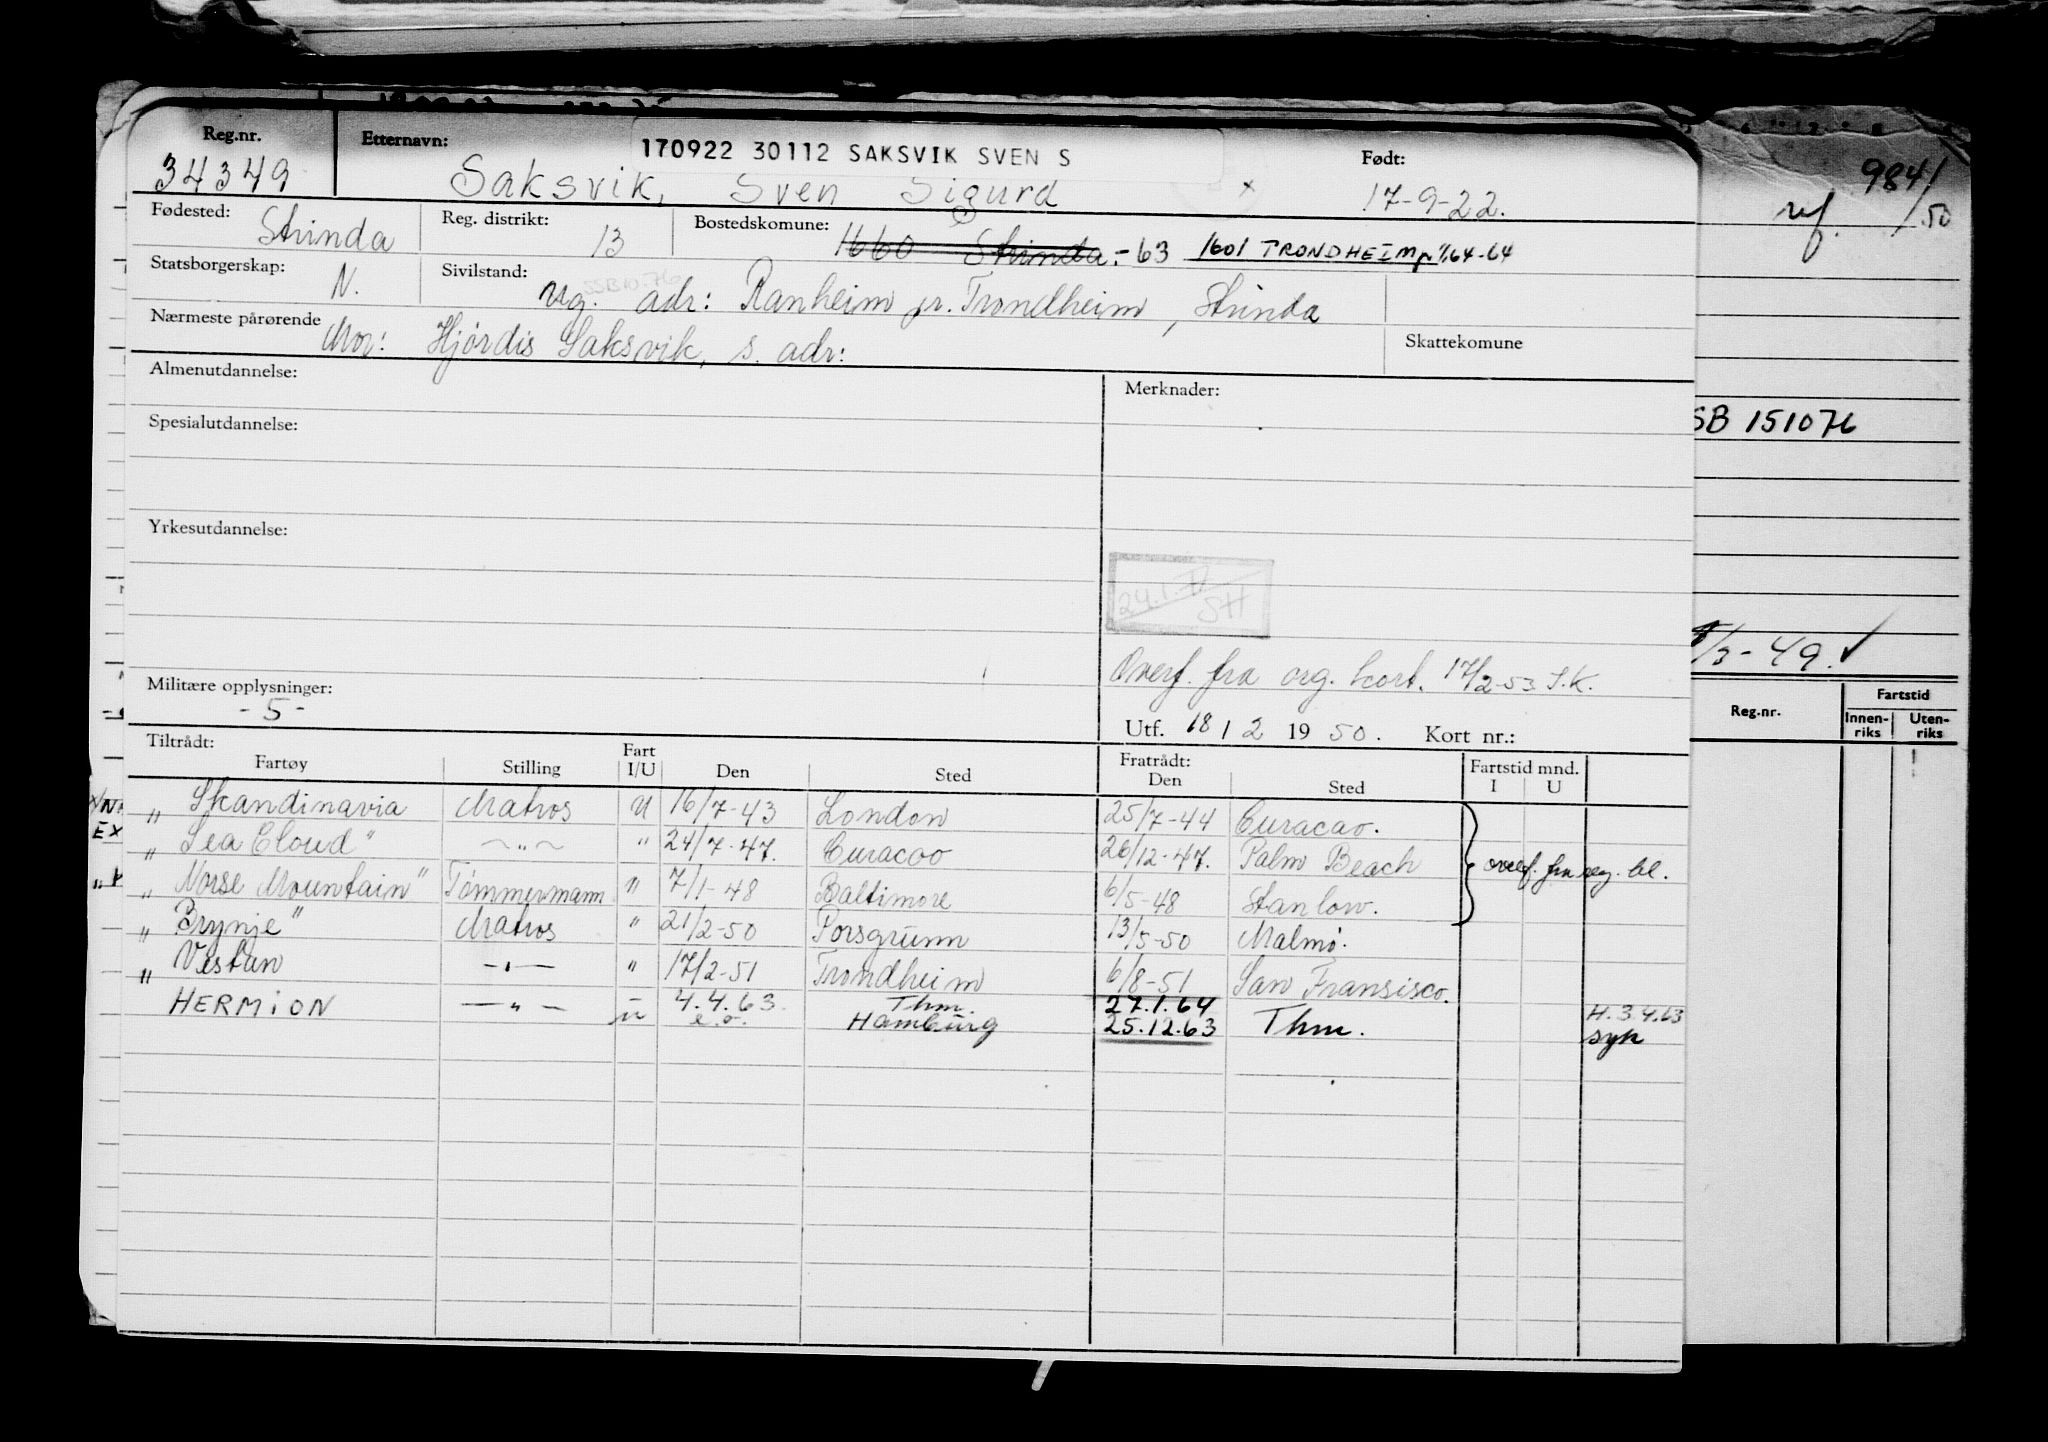 Reg.nr. Etternavn: 170922 30112 SAKSVIK SVEN S Født:
34349 Saksvik, Sven Sigurd x 17-9-22.
Fødested: Strinda Reg. distrikt: 13 Bostedskommune: 1660 Strinda.-63 1601 TRONDHEIM 64-64
Statsborgerskap: N. Sivilstand: Ug. adr: Ranheim pr. Trondheim, Strinda
Nærmeste pårørende Mor: Hjördis Saksvik, s. adr: Skattekomune
Almenutdannelse: Merknader:
Spesialutdannelse:
Yrkesutdannelse:
SH
Overf. fra org. kort. 17/2-53 S.K.
Militære opplysninger:
-5-
Utf. 18/2 1950. Kort nr.:
Tiltrådt: Fratrådt:
Fartøy Stilling Fart I/U Den Sted Den Sted Fartstid mnd. I U
" Skandinavia Matros U 16/7-43 London 25/7-44 Curacao.
" Sea Cloud" ~"~ " 24/7-47. Curacao 26/12-47. Palm Beach overf. fra reg. bl.
" Norse Mountain" Tömmermann " 7/1-48 Baltimore 6/5-48 Stanlow.
" Brynje" Matros " 21/2-50 Porsgrunn 13/5-50 Malmö.
" Vestan -"- " 17/2-51 Trondheim 6/8-51 San Fransisco.
HERMION -"- 4.4.63. Thm. 27.1.64 H. 3.4.63
u e.o. Hamburg 25.12.63 Thm. syk
984/50
ref.
SB 151076
/3-49. ✓
Reg.nr. Fartstid
Innenriks Utenriks